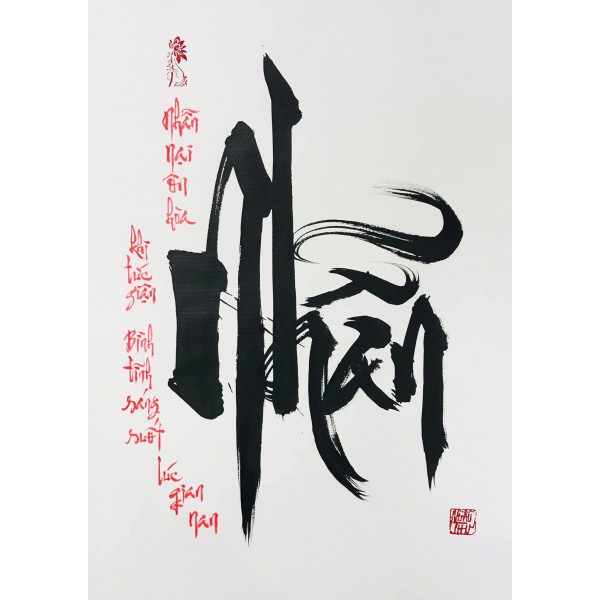 Nhẫn
nại
ôn
hòa
khi
tức
giận
Bình
tĩnh
sáng
suốt
lúc
gian
nan
Nhẫn